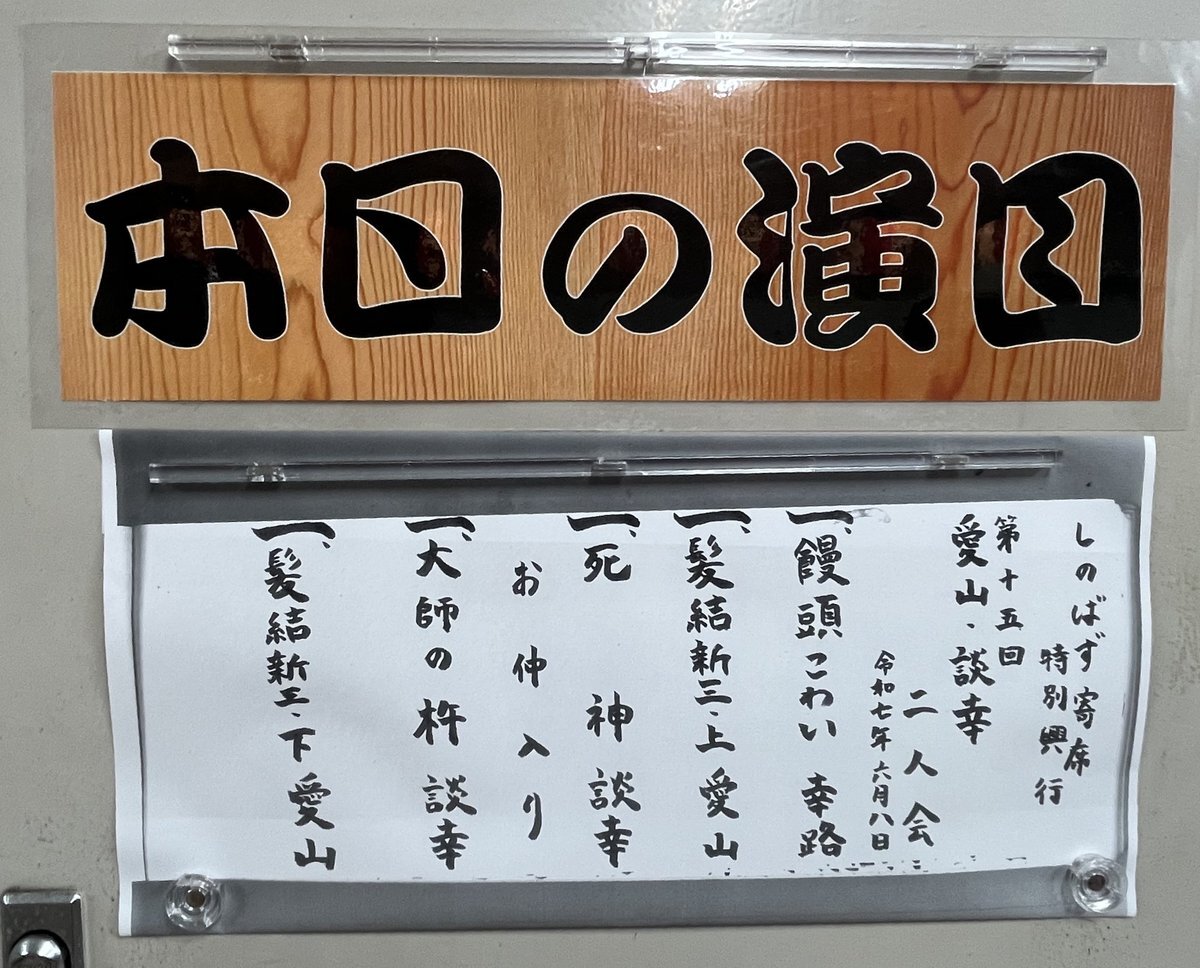 本日の演目
しのばず寄席
特別興行
第十五回
愛山、談幸
二人会
令和七年六月八日
一、饅頭こわい 幸路
一、髪結新三、上 愛山
一、死神 談幸
お仲入り
一、大師の杵 談幸
一、髪結新三、下 愛山